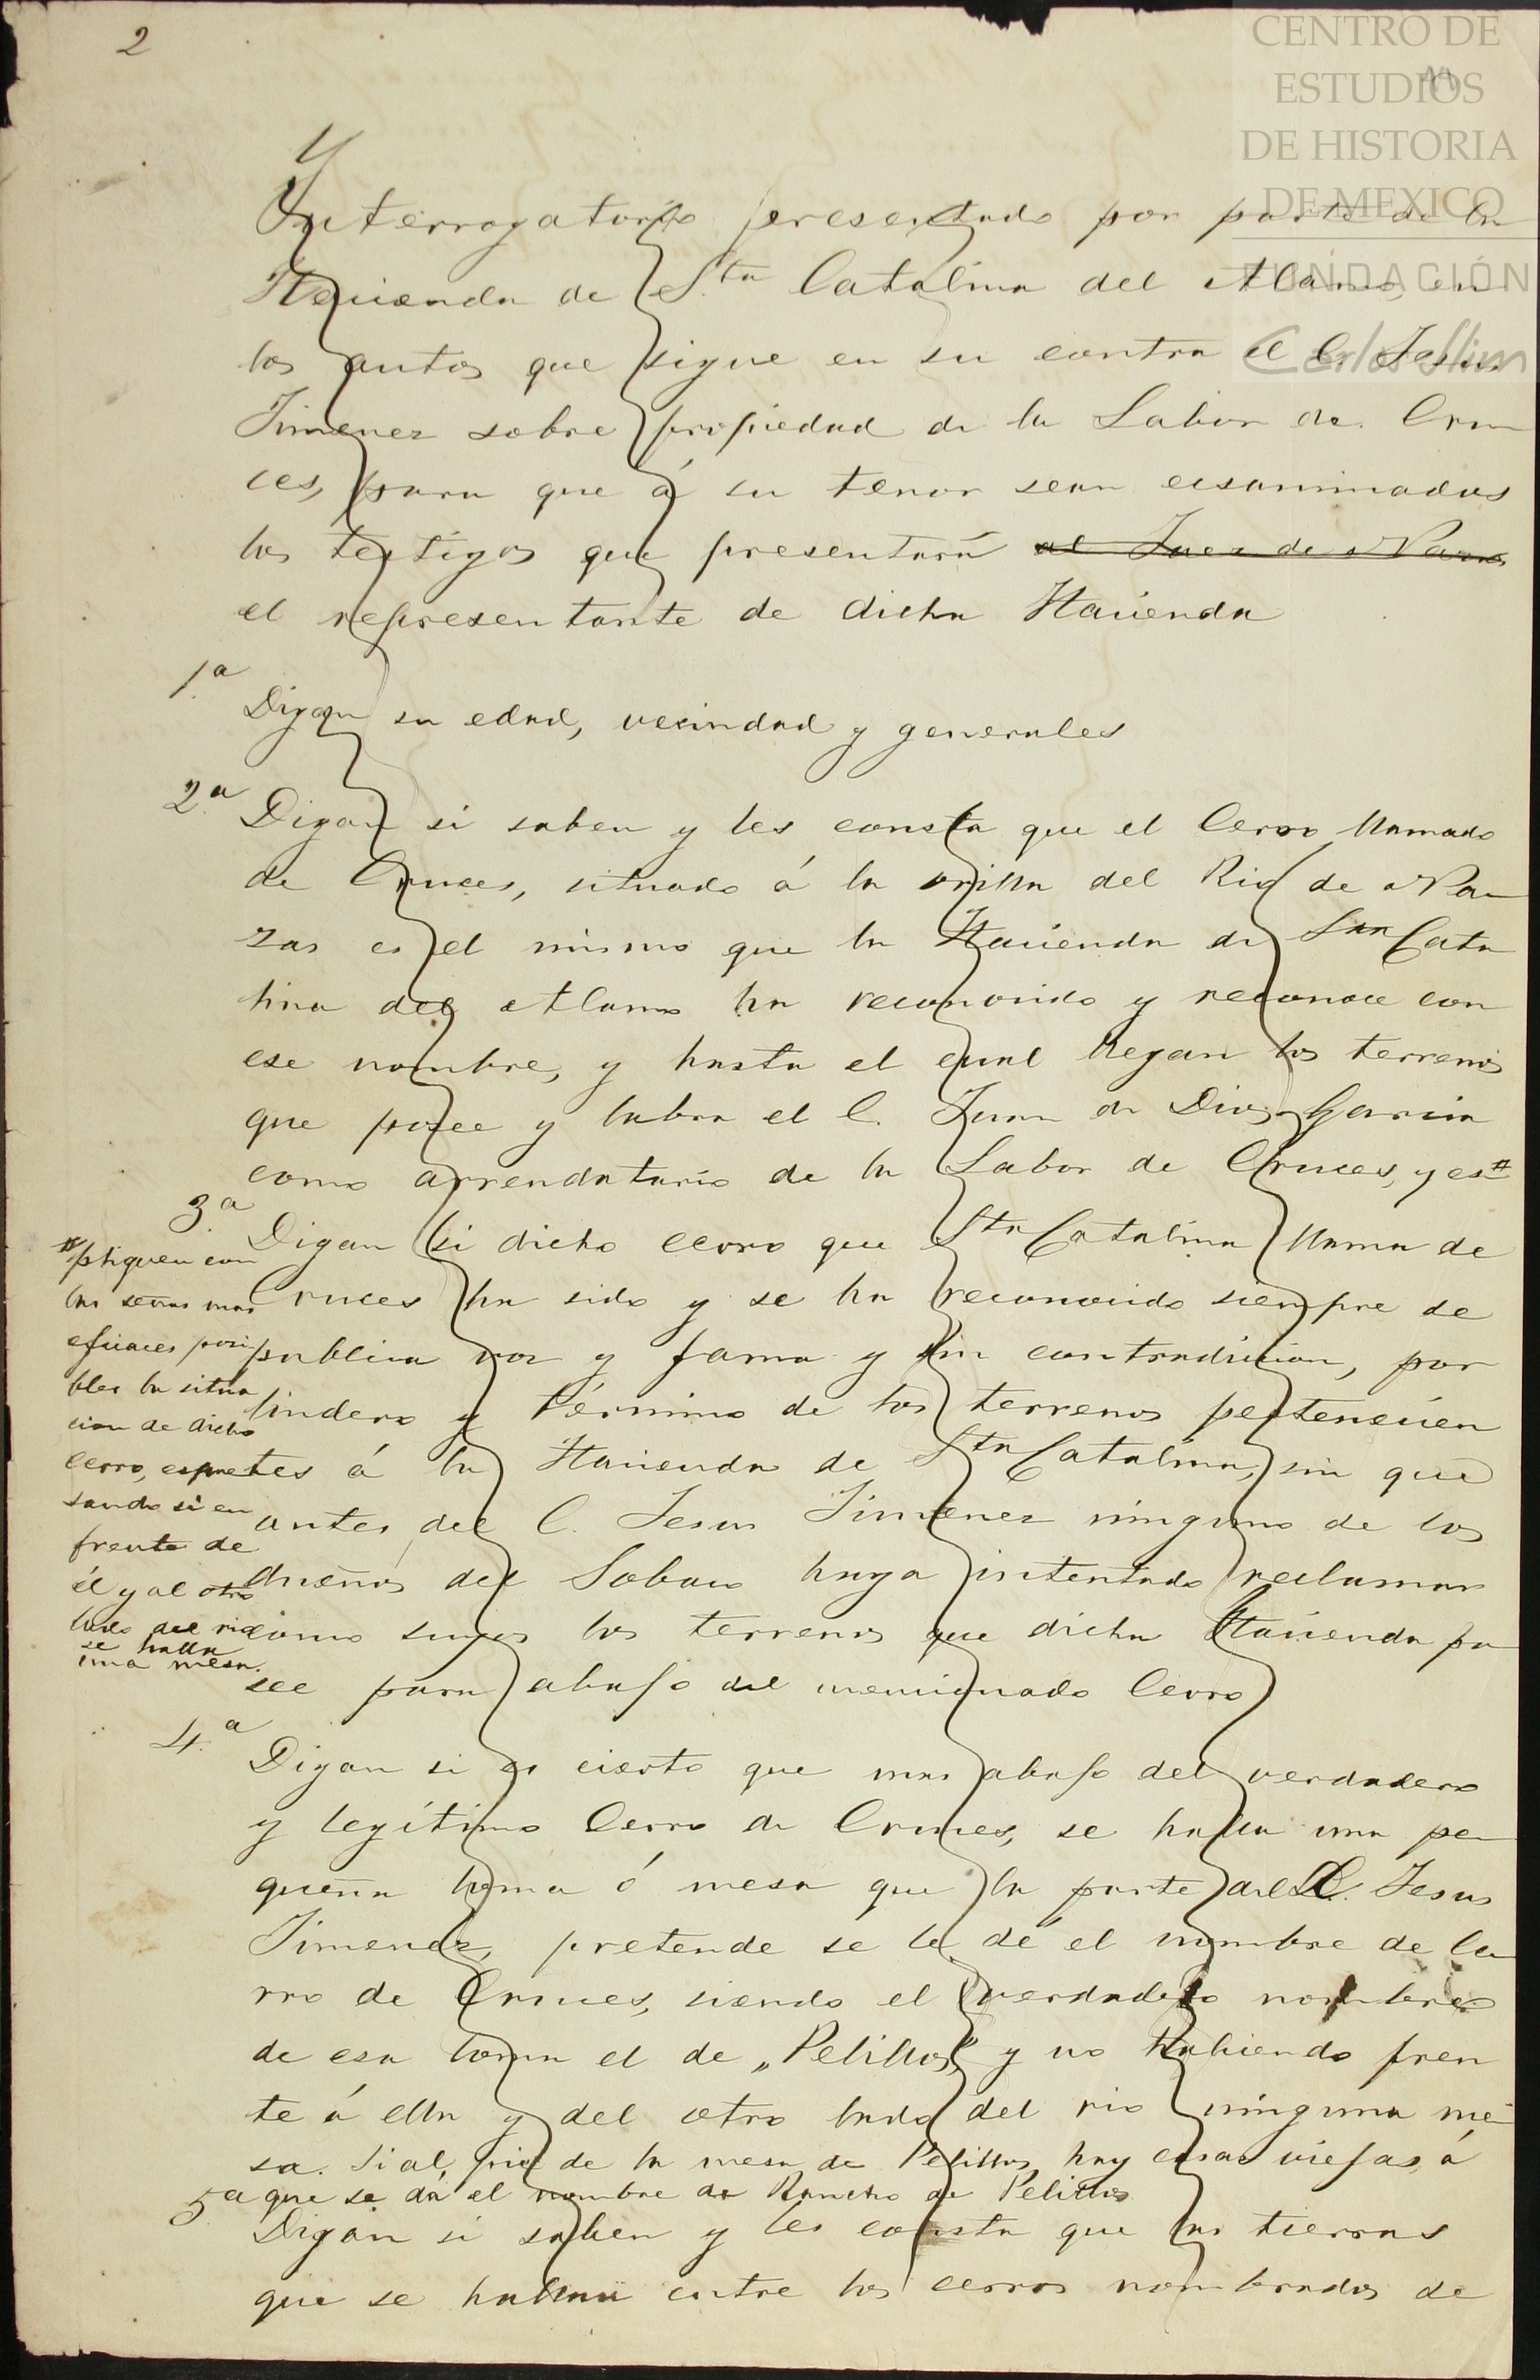 2
CENTRO DE
ESTUDIOS
DE HISTORIA
DE MEXICO
FUNDACIÓN
Carlos Slim
Interrogatorio presentado por parte de la
Hacienda de Sta Catalina del Alamo, en
los autos que sigue en su contra el C. Jesus
Jimenez sobre propiedad de la Labor de Cru
ces, para que á su tenor sean ecsaminados
los testigos que presentará al Juez de Nazas
el representante de dicha Hacienda
1.a Digan su edad, vecindad y generales
2.a Digan si saben y les consta que el Cerro llamado
de Cruces, situado á la orilla del Rio de Na
zas es el mismo que la Hacienda de Sta Cata
lina del Alamo ha reconocido y reconoce con
ese nombre, y hasta el cual llegan los terrenos
que posee y labra el C. Juan de Dios Garcia
como arrendatario de la Labor de Cruces, y es#
#pliquen con
las señas mas
eficaces posi
bles la situa
cion de dicho
cerro, espre
sando si en
frente de
él y al otro
lado del rio
se halla
una mesa.
3.a Digan si dicho cerro que Sta Catalina llama de
Cruces ha sido y se ha reconocido siempre de
publica voz y fama y sin contradiccion, por
lindero y término de los terrenos pertenecien
tes á la Hacienda de Sta Catalina, sin que
antes del C. Jesus Jimenez ninguno de los
dueños del Sobaco haya intentado reclamar
como suyos los terrenos que dicha Hacienda po
see para abajo del mencionado Cerro
4.a Digan si es cierto que mas abajo del verdadero
y legítimo Cerro de Cruces, se halla una pe
queña loma ó mesa que la parte del C. Jesus
Jimenez, pretende se le dé el nombre de Ce
rro de Cruces, siendo el verdadero nombre
de esa loma el de „Pelillos" y no habiendo fren
te á ella y del otro lado del rio ninguna me
sa. Si al pié de la mesa de Pelillos hay casas viejas á
que se da el nombre de Rancho de Pelillos
5.a Digan si saben y les consta que las tierras
que se hallan entre los cerros nombrados de